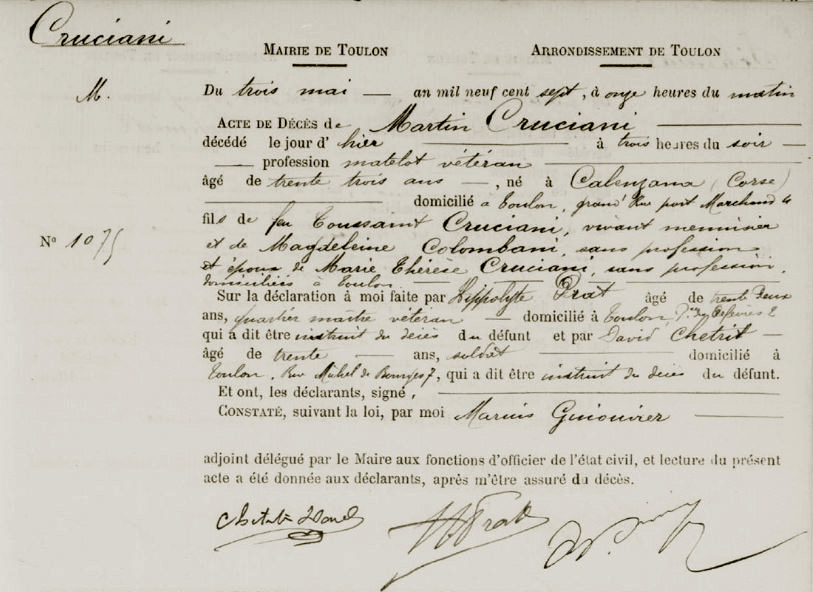 Cruciani
MAIRIE DE TOULON ARRONDISSEMENT DE TOULON
M.
Du trois mai — an mil neuf cent sept, à onze heures du matin
ACTE DE DÉCÈS de Martin Cruciani
décédé le jour d'hier à trois heures du soir —
— profession matelot vétéran
âgé de trente trois ans —, né à Calenzana (Corse)
domicilié à Toulon, grand' Rue port Marchand 4
fils de feu Toussaint Cruciani, vivant menuisier
Nº 1075
et de Magdeleine Colombani, sans profession
et époux de Marie Thérèse Cruciani, sans profession,
domiciliés à Toulon
Sur la déclaration à moi faite par Hippolyte Prat âgé de trente deux
ans, quartier maître vétéran — domicilié à Toulon,
qui a dit être instruit du décès du défunt et par David Chetrit —
âgé de trente — ans, soldat domicilié à
Toulon, Rue Michel de Bourges 7, qui a dit être instruit du décès du défunt.
Et ont, les déclarants, signé,
CONSTATÉ, suivant la loi, par moi Marius
adjoint délégué par le Maire aux fonctions d'officier de l'état civil, et lecture du présent
acte a été donnée aux déclarants, après m'être assuré du décès.
HPrat